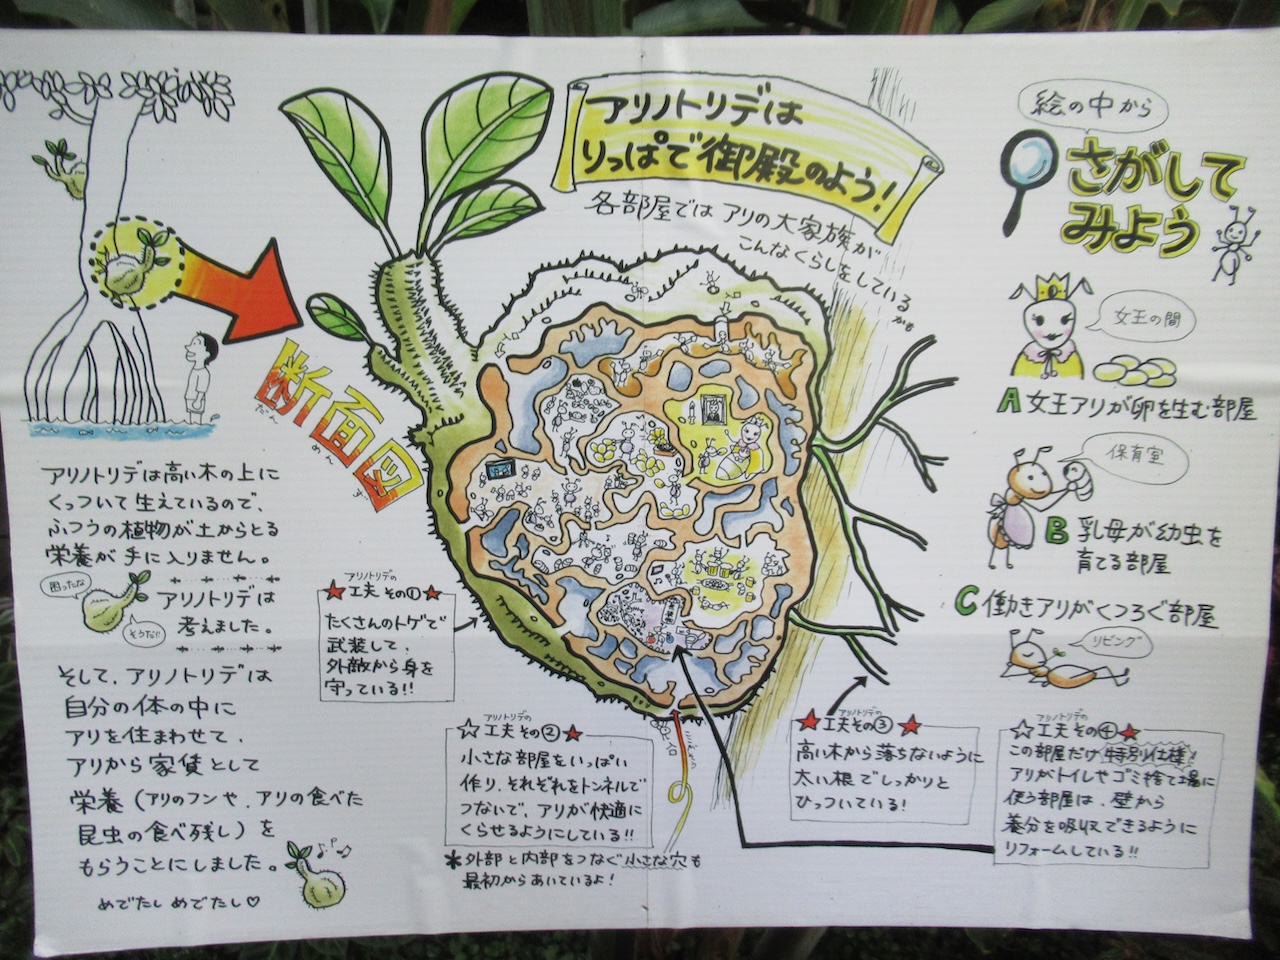 アリノトリデは
りっぱで御殿のよう!
各部屋では アリの大家族が
こんなくらしをしているかも
絵の中から
さがして
みよう
女王の間
A 女王アリが卵を生む部屋
保育室
B 乳母が幼虫を
育てる部屋
C 働きアリがくつろぐ部屋
リビング
断面図
だん めん ず
アリノトリデは高い木の上に
くっついて生えているので、
ふつうの植物が土からとる
栄養が手に入りません。
困ったな
そうだ!!
アリノトリデは
考えました。
そして、アリノトリデは
自分の体の中に
アリを住まわせて、
アリから家賃として
栄養(アリのフンや、アリの食べた
昆虫の食べ残し)を
もらうことにしました。
めでたし めでたし♡
アリノトリデの
★工夫 その①★
たくさんのトゲで
武装して、
外敵から身を
守っている!!
アリノトリデの
☆工夫 その②★
小さな部屋をいっぱい
作り、それぞれをトンネルで
つないで、アリが快適に
くらせるようにしている!!
*外部と内部をつなぐ小さな穴も
最初からあいているよ!
アリノトリデの
★工夫その③★
高い木から落ちないように
太い根でしっかりと
ひっついている!
アリノトリデの
☆工夫 その④★
この部屋だけ特別仕様!
アリがトイレやゴミ捨て場に
使う部屋は、壁から
養分を吸収できるように
リフォームしている!!